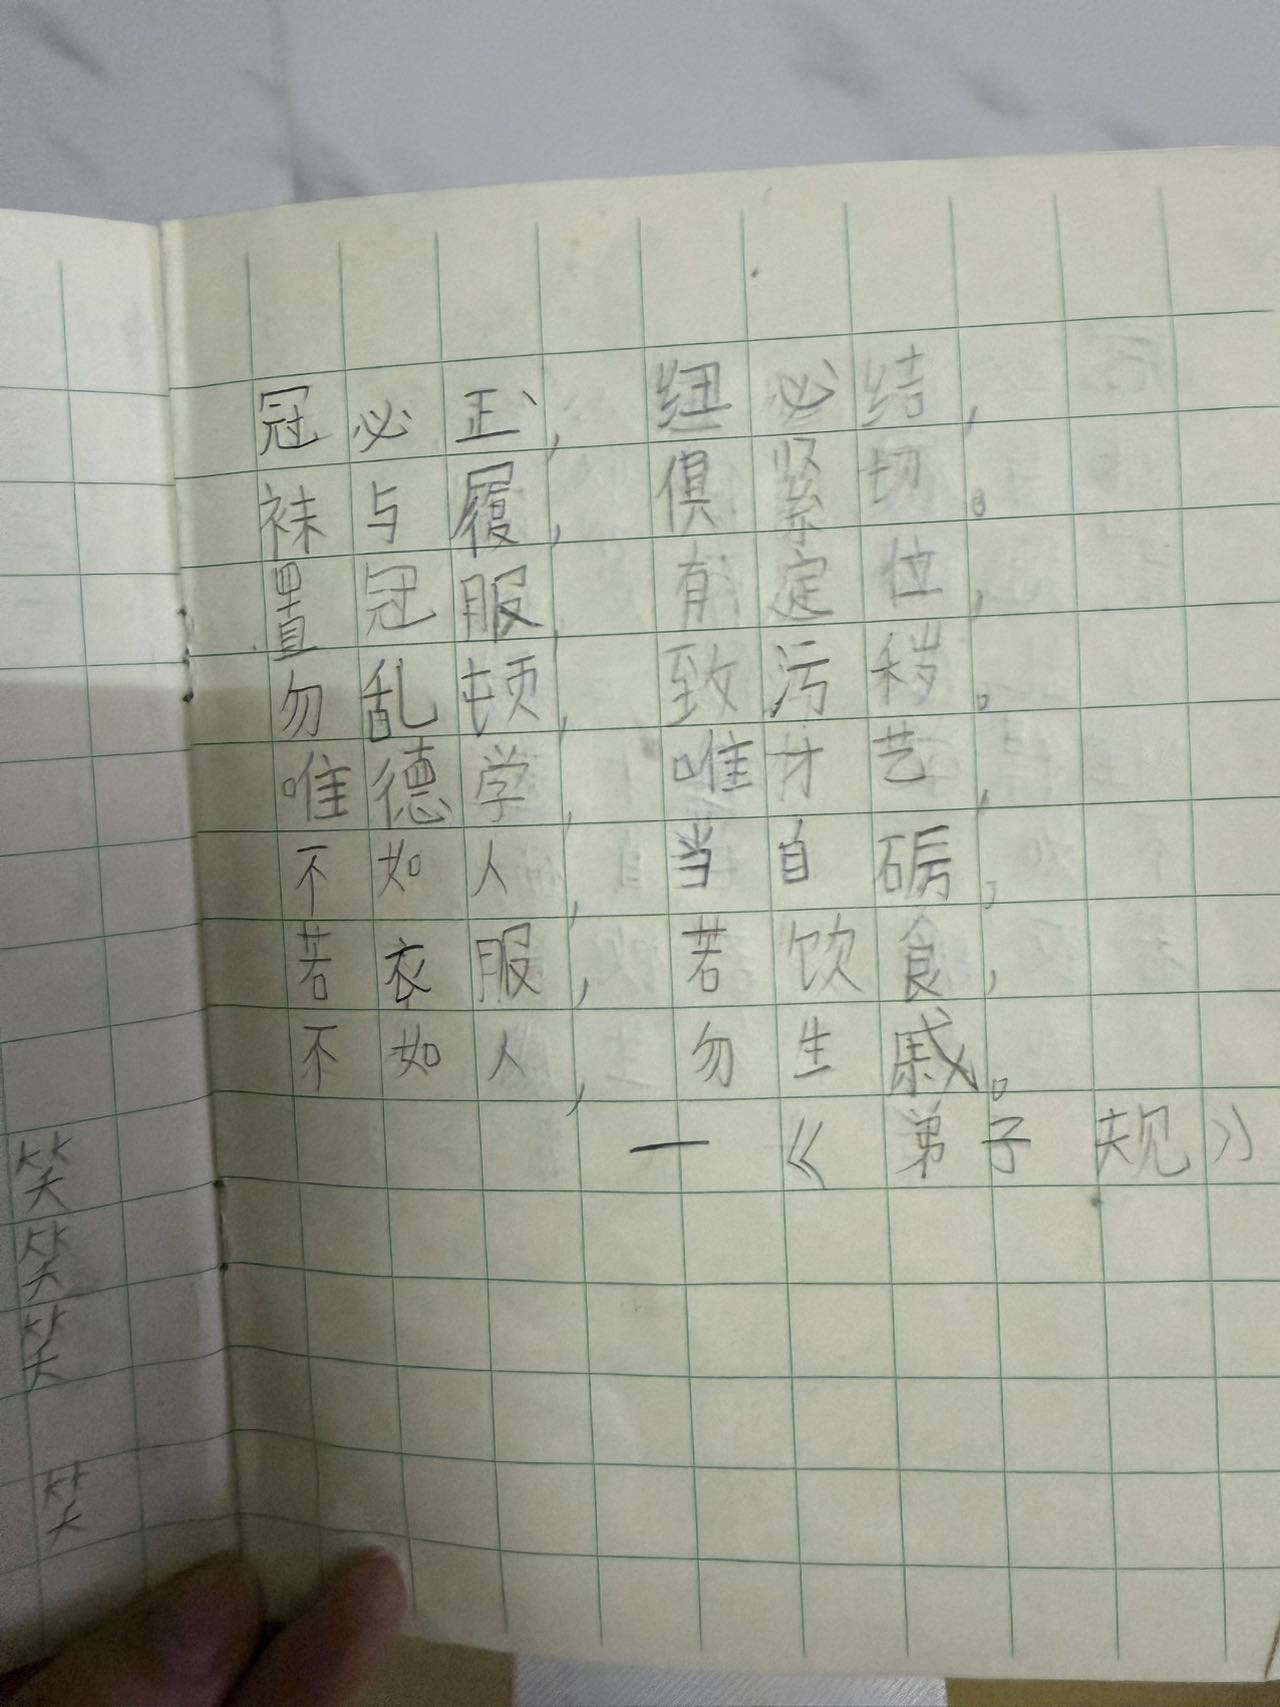 冠必正，纽必结，
袜与履，俱紧切。
置冠服，有定位，
勿乱顿，致污秽。
唯德学，唯才艺，
不如人，当自砺，
若衣服，若饮食，
不如人，勿生戚。
—《弟子规》
笑
笑
笑
笑